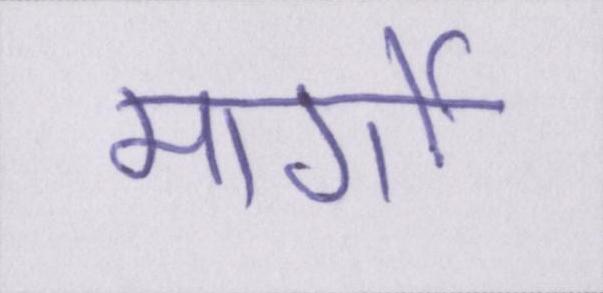 मार्गो